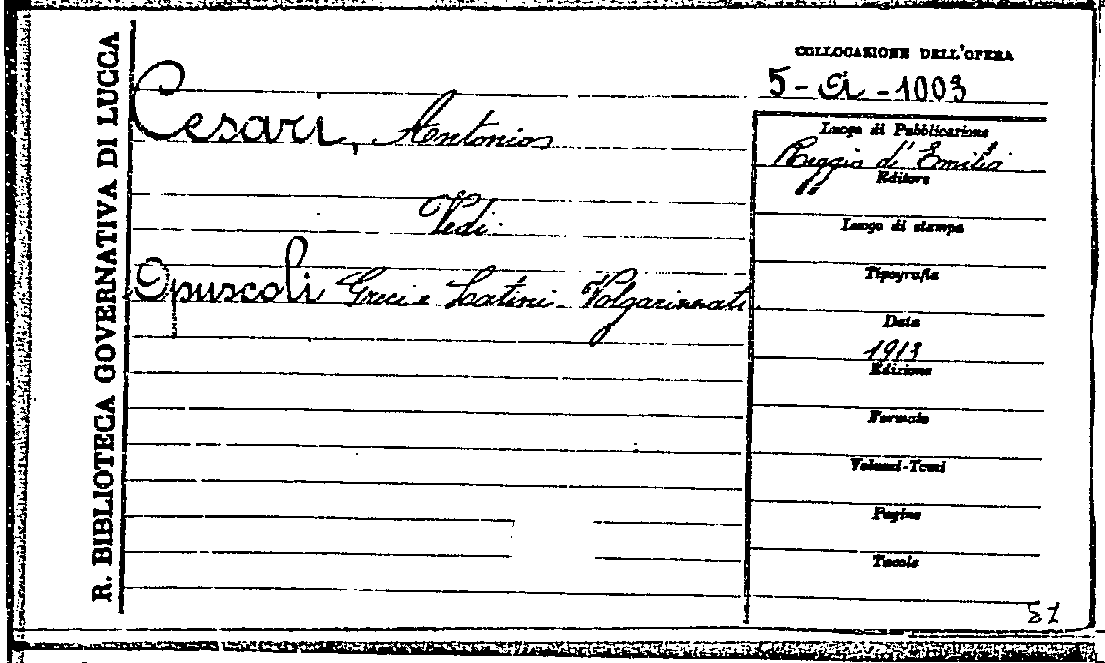 R. BIBLIOTECA GOVERNATIVA DI LUCCA
COLLOCAZIONE DELL'OPERA
5 - a - 1003
Cesari, Antonio
Vedi
Opuscoli Greci e Latini Volgarizzati
Luogo di Pubblicazione
Reggio d'Emilia
Editore
Luogo di stampa
Tipografia
Data
1913
Edizione
Formato
Volumi-Tomi
Pagine
Tavole